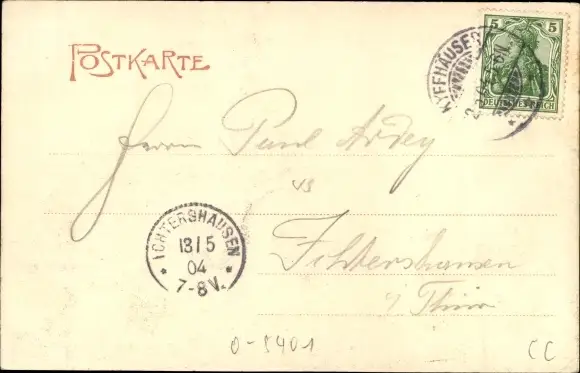 POSTKARTE
KYFFHÄUSER
5 5
DEUTSCHES REICH
Herrn Paul Ardey
Ichtershausen
i/ Thür
ICHTERSHAUSEN
13/5
04
7-8V.
O-5401
CC